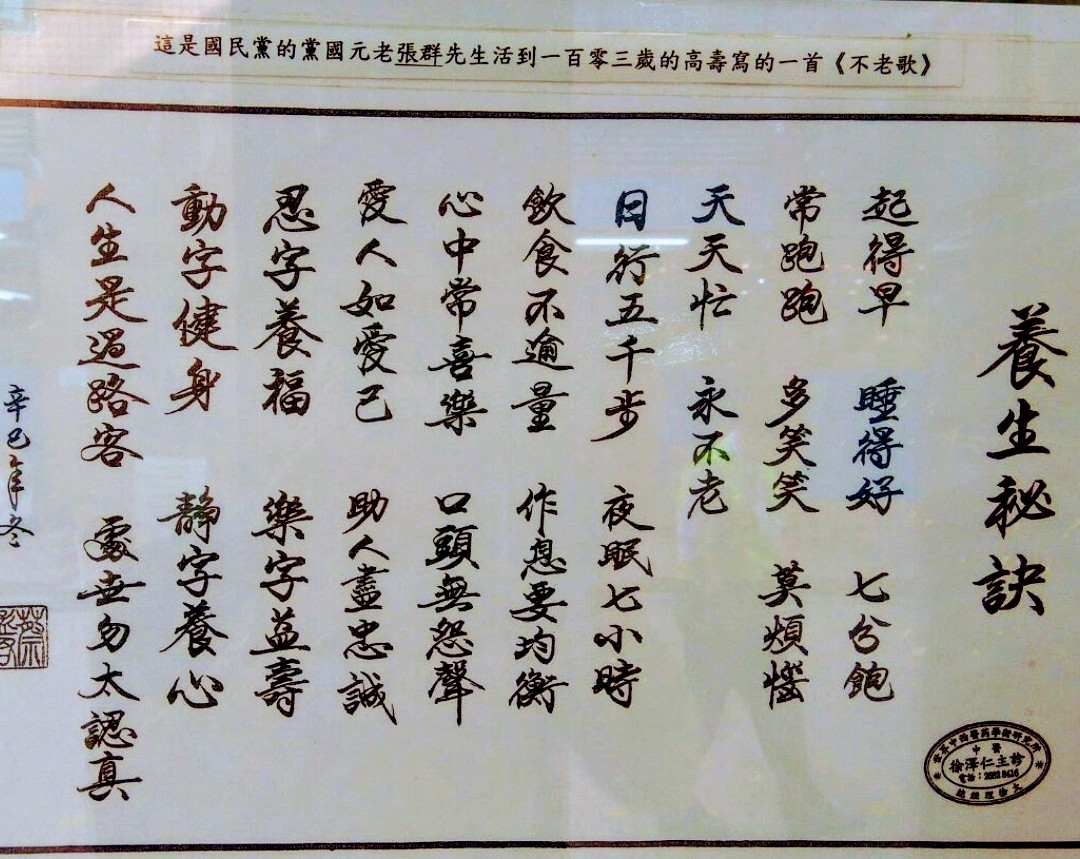 這是國民黨的黨國元老張群先生活到一百零三歲的高壽寫的一首《不老歌》
養生秘訣
起得早 睡得好 七分飽
常跑跑 多笑笑 莫煩惱
天天忙 永不老
日行五千步 夜眠七小時
飲食不逾量 作息要均衡
心中常喜樂 口頭無怨聲
愛人如愛己 助人盡忠誠
忍字養福 樂字益壽
動字健身 靜字養心
人生是過路客 處世勿太認真
辛巳年冬
中醫
徐澤仁主診
電話:2682 8416